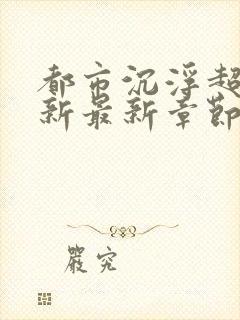 都市沉浮超
新最新章節
嚴究